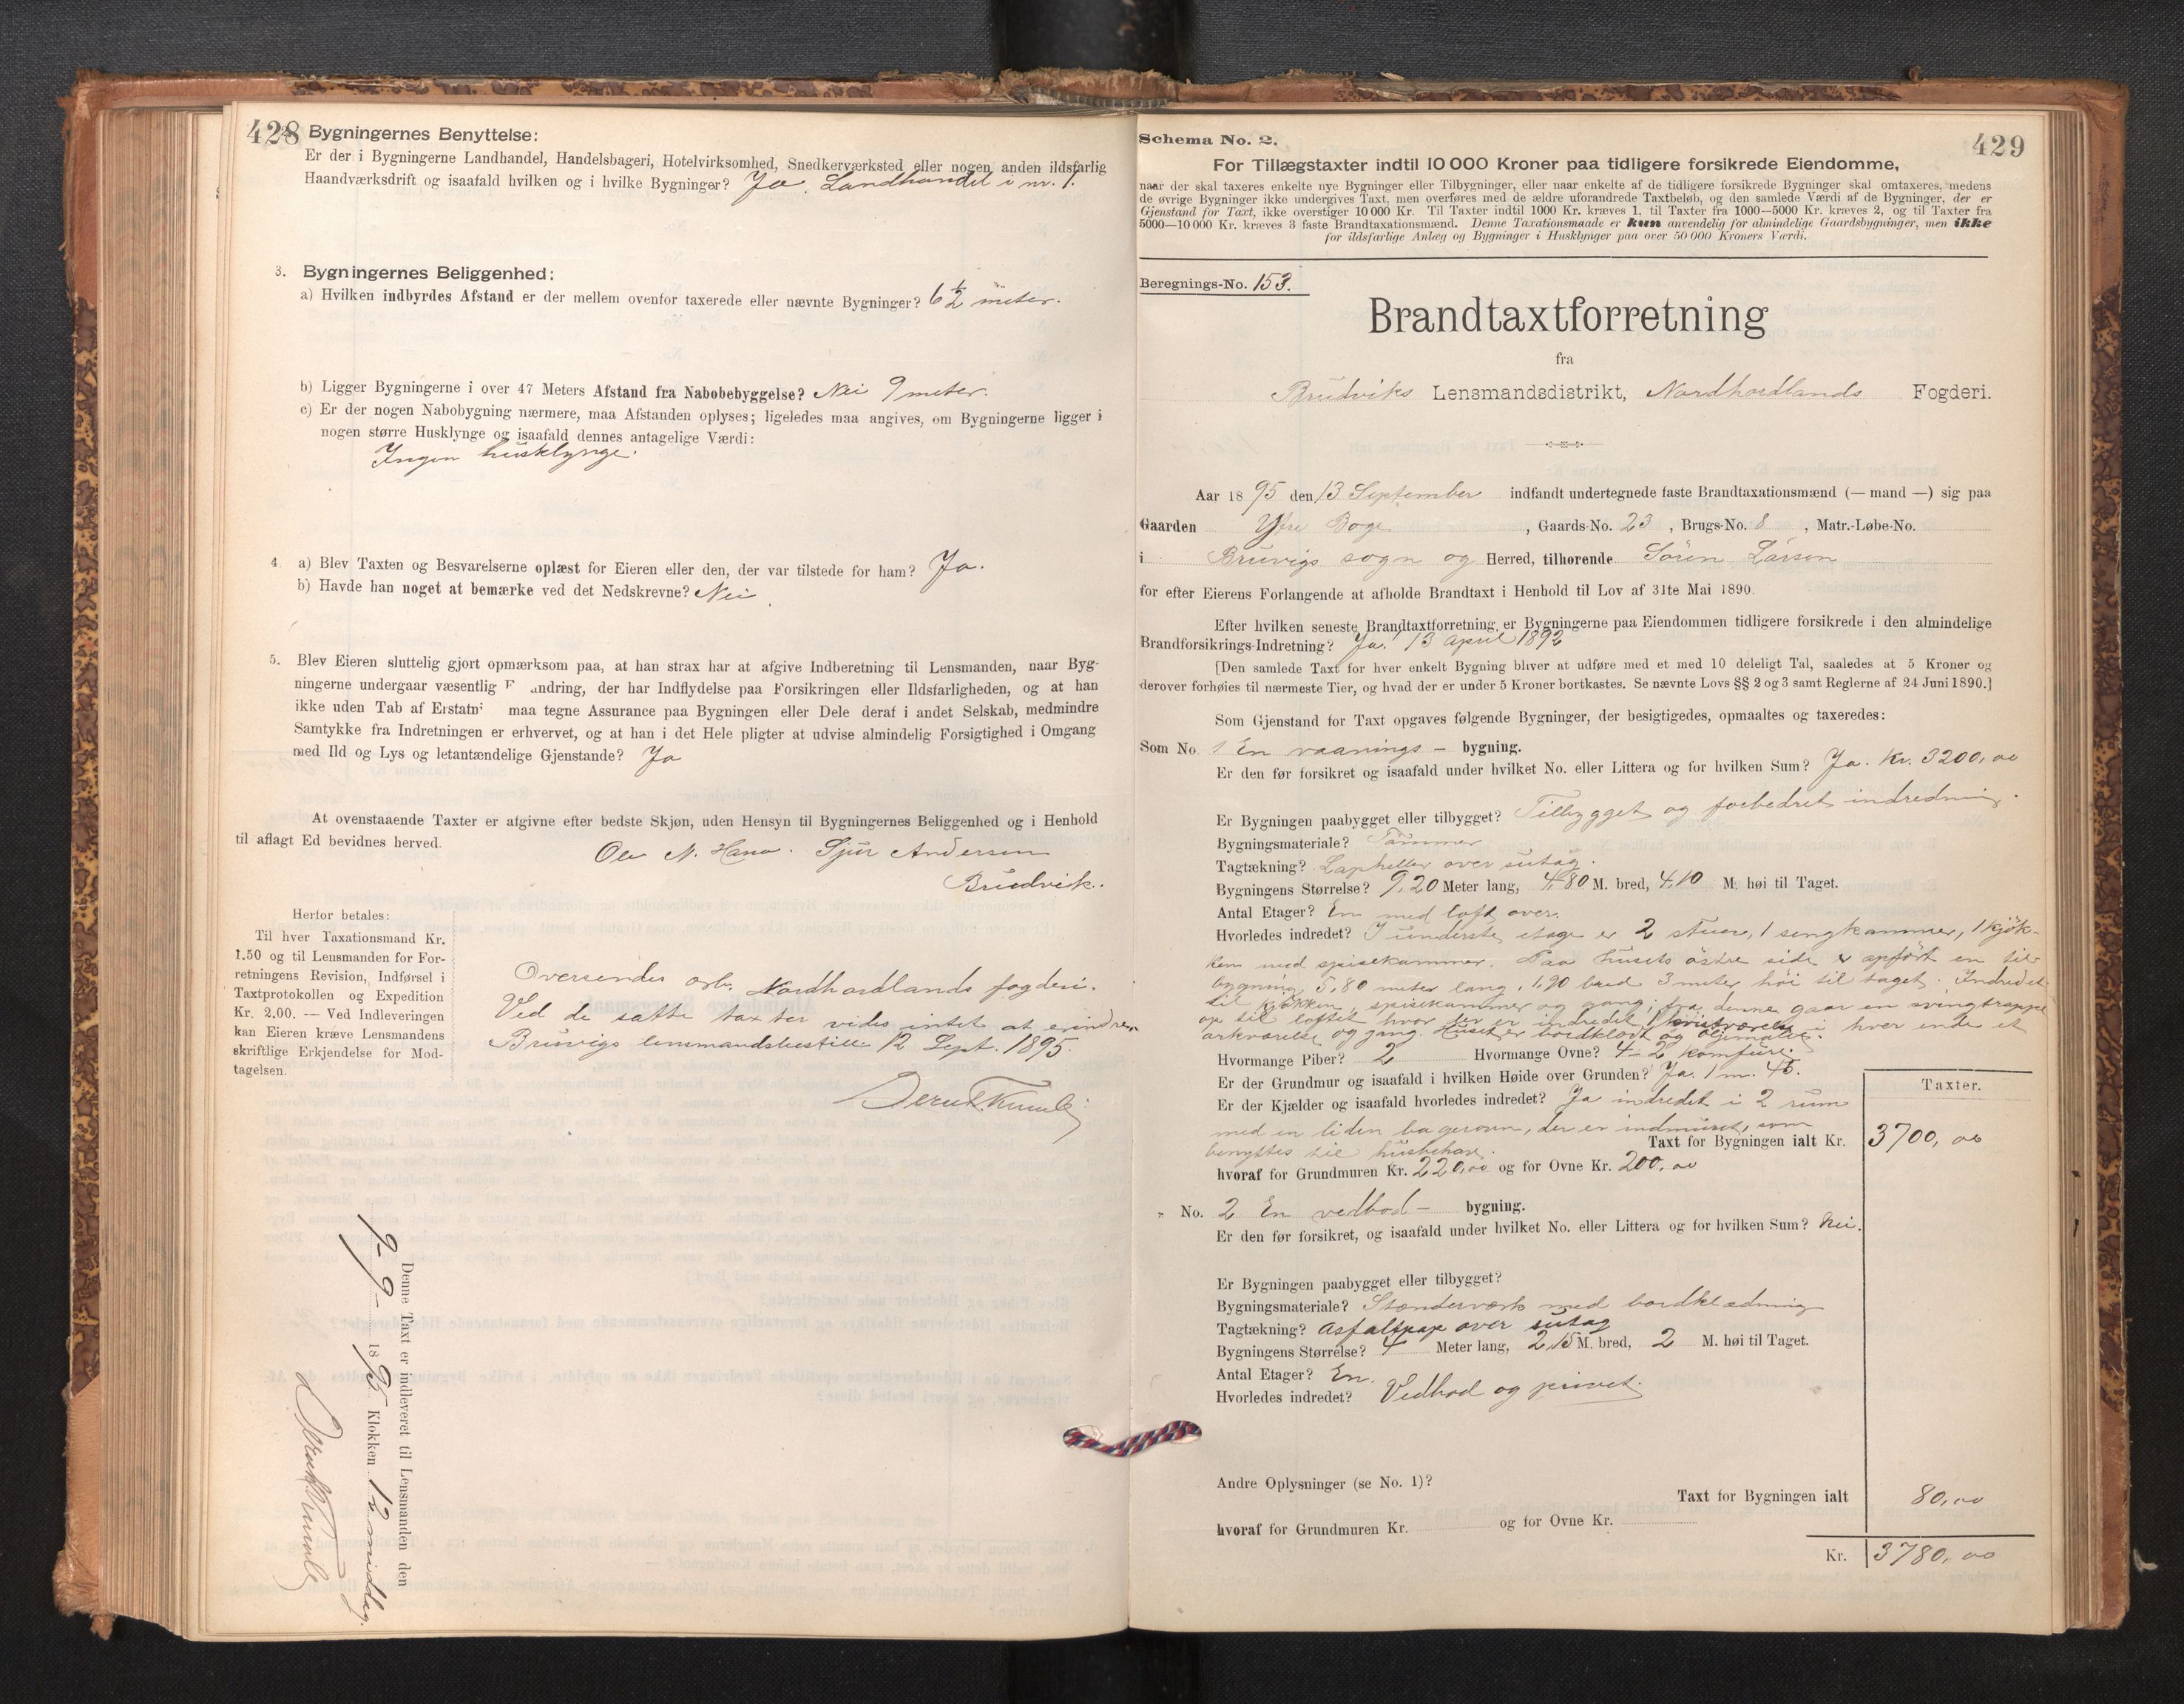 428
Bygningernes Benyttelse:
Er der i Bygningerne Landhandel, Handelsbageri, Hotelvirksomhed, Snedkerværksted eller nogen anden ildsfarlig
Haandværksdrift og isaafald hvilken og i hvilke Bygninger? Ja. Landhandel i nr. 1.
3. Bygningernes Beliggenhed:
a) Hvilken indbyrdes Afstand er der mellem ovenfor taxerede eller nævnte Bygninger? 6 1/2 meter.
b) Ligger Bygningerne i over 47 Meters Afstand fra Nabobebyggelse? Nei 9 meter.
c) Er der nogen Nabobygning nærmere, maa Afstanden oplyses; ligeledes maa angives, om Bygningerne ligger i
nogen større Husklynge og isaafald dennes antagelige Værdi:
Ingen husklynge.
4. a) Blev Taxten og Besvarelserne oplæst for Eieren eller den, der var tilstede for ham? Ja.
b) Havde han noget at bemærke ved det Nedskrevne? Nei
5. Blev Eieren sluttelig gjort opmærksom paa, at han strax har at afgive Indberetning til Lensmanden, naar Byg-
ningerne undergaar væsentlig F andring, der har Indflydelse paa Forsikringen eller Ildsfarligheden, og at han
ikke uden Tab af Erstatni maa tegne Assurance paa Bygningen eller Dele deraf i andet Selskab, medmindre
Samtykke fra Indretningen er erhvervet, og at han i det Hele pligter at udvise almindelig Forsigtighed i Omgang
med Ild og Lys og letantændelige Gjenstande? Ja
At ovenstaaende Taxter er afgivne efter bedste Skjøn, uden Hensyn til Bygningernes Beliggenhed og i Henhold
til aflagt Ed bevidnes herved.
Ole N. Hana. Sjur Andersen
Brudvik.
Herfor betales:
Til hver Taxationsmand Kr.
1.50 og til Lensmanden for For-
retningens Revision, Indførsel i
Taxtprotokollen og Expedition
Kr. 2.00. — Ved Indleveringen
kan Eieren kræve Lensmandens
skriftlige Erkjendelse for Mod-
tagelsen.
Oversendes ærb. Nordhordlands fogderi.
Ved de satte taxter vides intet at erindre.
Bruvigs lensmandsbestill. 12 Sept. 1895.
Denne Taxt er indleveret til Lensmanden den
9-9- 1895 Klokken 12 middag.
429
Schema No. 2.
For Tillægstaxter indtil 10 000 Kroner paa tidligere forsikrede Eiendomme,
naar der skal taxeres enkelte nye Bygninger eller Tilbygninger, eller naar enkelte af de tidligere forsikrede Bygninger skal omtaxeres, medens
de øvrige Bygninger ikke undergives Taxt, men overføres med de ældre uforandrede Taxtbeløb, og den samlede Værdi af de Bygninger, der er
Gjenstand for Taxt, ikke overstiger 10 000 Kr. Til Taxter indtil 1000 Kr. kræves 1, til Taxter fra 1000—5000 Kr. kræves 2, og til Taxter fra
5000—10 000 Kr. kræves 3 faste Brandtaxationsmænd. Denne Taxationsmaade er kun anvendelig for almindelige Gaardsbygninger, men ikke
for ildsfarlige Anlæg og Bygninger i Husklynger paa over 50 000 Kroners Værdi.
Beregnings-No. 153.
Brandtaxtforretning
fra
Brudviks Lensmandsdistrikt, Nordhordlands Fogderi.
Aar 1895 den 13 September indfandt undertegnede faste Brandtaxationsmænd (— mand —) sig paa
Gaarden Ytre Boge, Gaards-No. 23, Brugs-No. 8, Matr.-Løbe-No.
i Bruvigs sogn og Herred, tilhørende Sören Larsen
for efter Eierens Forlangende at afholde Brandtaxt i Henhold til Lov af 31te Mai 1890.
Efter hvilken seneste Brandtaxtforretning er Bygningerne paa Eiendommen tidligere forsikrede i den almindelige
Brandforsikrings-Indretning? Ja. 13 April 1892
[Den samlede Taxt for hver enkelt Bygning bliver at udføre med et med 10 deleligt Tal, saaledes at 5 Kroner og
derover forhøies til nærmeste Tier, og hvad der er under 5 Kroner bortkastes. Se nævnte Lovs §§ 2 og 3 samt Reglerne af 24 Juni 1890.]
Som Gjenstand for Taxt opgaves følgende Bygninger, der besigtigedes, opmaaltes og taxeredes:
Som No. 1 En vaanings – bygning.
Er den før forsikret og isaafald under hvilket No. eller Littera og for hvilken Sum? Ja. Kr. 3200,00
Er Bygningen paabygget eller tilbygget? Tilbygget og forbedret indredning.
Bygningsmateriale? Tømmer
Tagtækning? Lapheller over sutag.
Bygningens Størrelse? 9,20 Meter lang, 4,80 M. bred, 4,10 M. høi til Taget.
Antal Etager? En med loft over.
Hvorledes indredet? I underste etage er 2 stuer, 1 sengkammer, 1 kjøk-
ken med spisekammer. Paa husets østre side er opført en til-
bygning 5,80 meter lang, 1,90 bred 3 meter høi til taget. Indredet
til kjøkken, spisekammer og gang; fra denne gaar en svingtrappe
op til loftet hvor der er indredet 1 kvistværelse i hver ende et
arkværelse og gang. Huset er bordklædt og oljemalet.
Hvormange Piber? 2 Hvormange Ovne? 4 – 2 komfure.
Er der Grundmur og isaafald i hvilken Høide over Grunden? Ja. 1 m. 45.
Er der Kjælder og isaafald hvorledes indredet? Ja indredet i 2 rum
med en liden bagerovn, der er indmuret, som
benyttes til husbehov.
Taxter.
Taxt for Bygningen ialt Kr. 3700,00
hvoraf for Grundmuren Kr. 220,00 og for Ovne Kr. 200,00
" No. 2 En vedbod – bygning.
Er den før forsikret, og isaafald under hvilket No. eller Littera og for hvilken Sum? Nei.
Er Bygningen paabygget eller tilbygget?
Bygningsmateriale? Stænderværk med bordklædning
Tagtækning? Asfaltpap over sutag
Bygningens Størrelse? 4 Meter lang, 2,15 M. bred, 2 M. høi til Taget.
Antal Etager? En.
Hvorledes indredet? Vedbod og privet.
Andre Oplysninger (se No. 1)?
Taxt for Bygningen ialt 80,00
hvoraf for Grundmuren Kr. og for Ovne Kr.
Kr. 3780,00